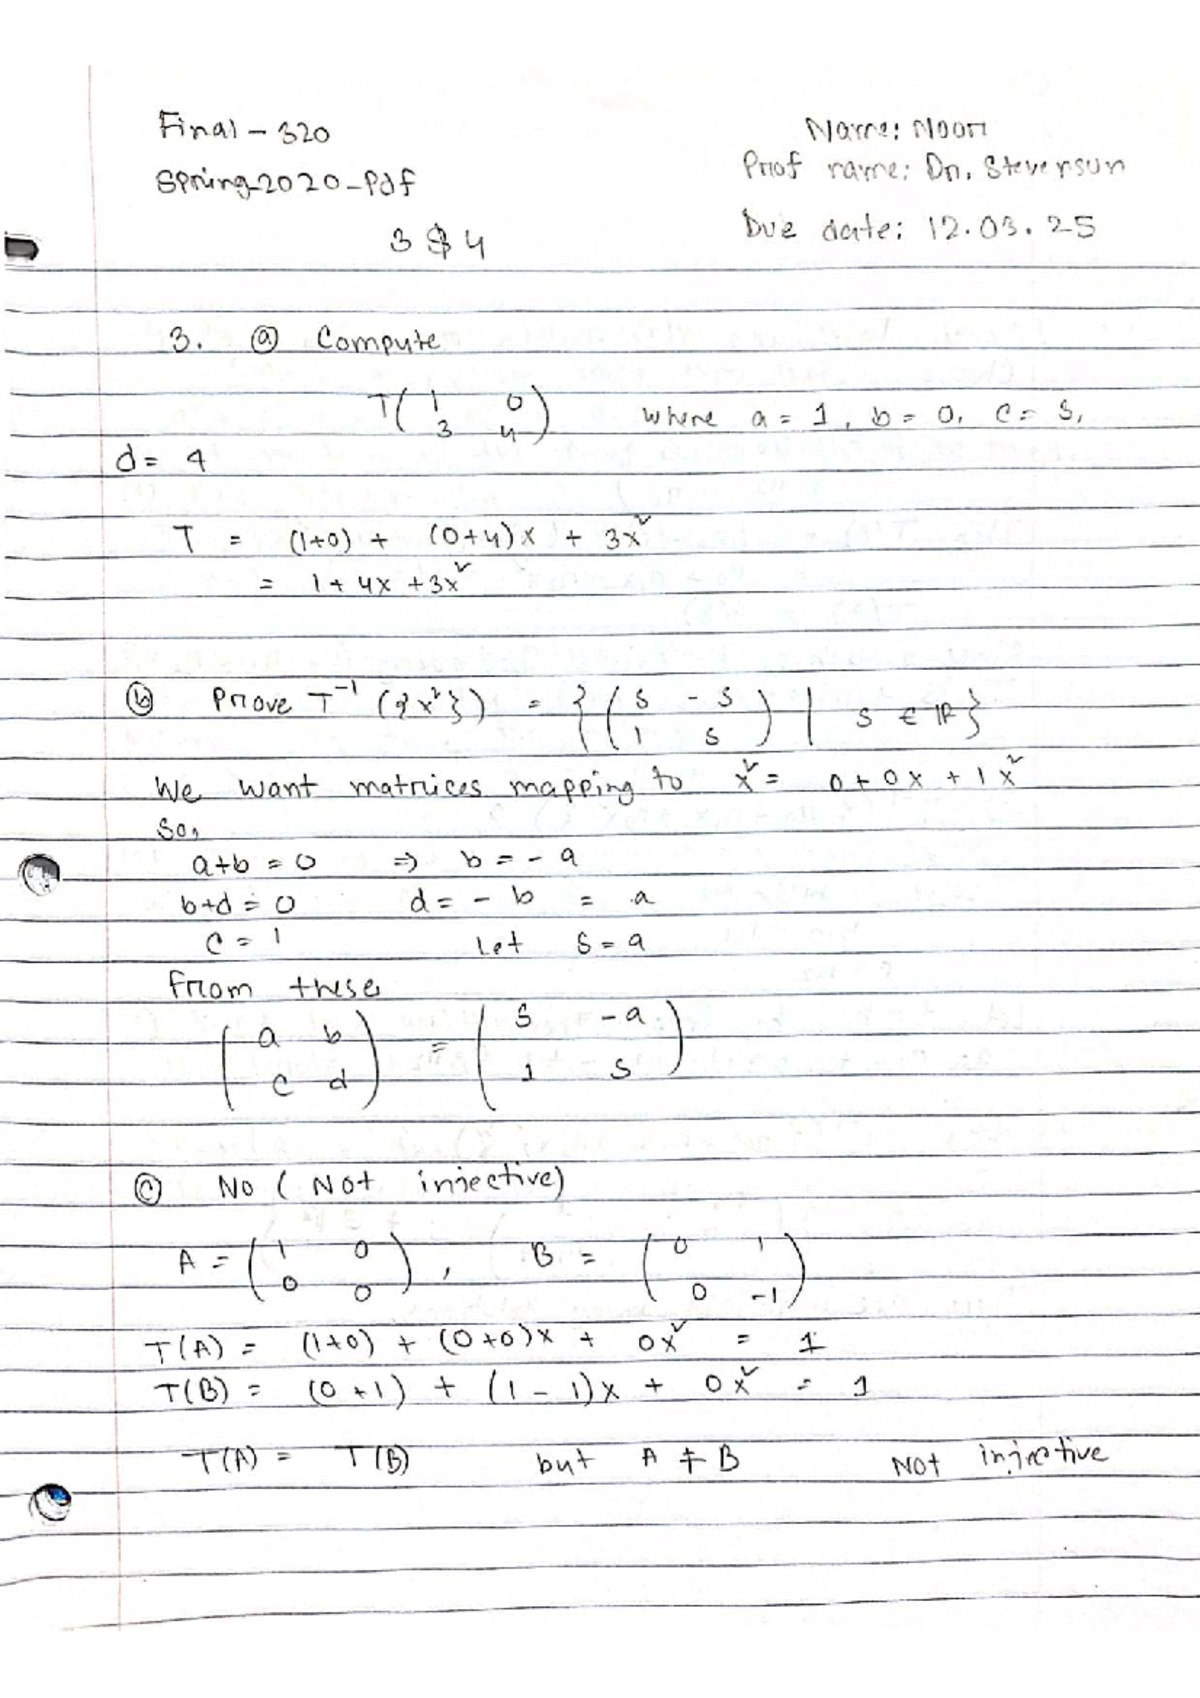 Final - 320
Name: Noori
Spring-2020-Pdf
Prof name: Dr. Steverson
3 & 4
Due date: 12.03.25
3. ⓐ Compute
T( 1 0 / 3 4 ) where a = 1, b = 0, c = 3,
d = 4
T = (1+0) + (0+4)x + 3x²
= 1 + 4x + 3x²
ⓑ Prove T⁻¹ ({x²}) = { ( s -s / 1 s ) | s ∈ IR }
We want matrices mapping to x² = 0 + 0x + 1x²
So,
a+b = 0 ⇒ b = - a
b+d = 0 d = - b = a
c = 1 Let s = a
From these
( a b / c d ) = ( s -a / 1 s )
ⓒ No ( Not injective)
A = ( 1 0 / 0 0 ), B = ( 0 1 / 0 -1 )
T(A) = (1+0) + (0+0)x + 0x² = 1
T(B) = (0+1) + (1-1)x + 0x² = 1
T(A) = T(B) but A ≠ B Not injective